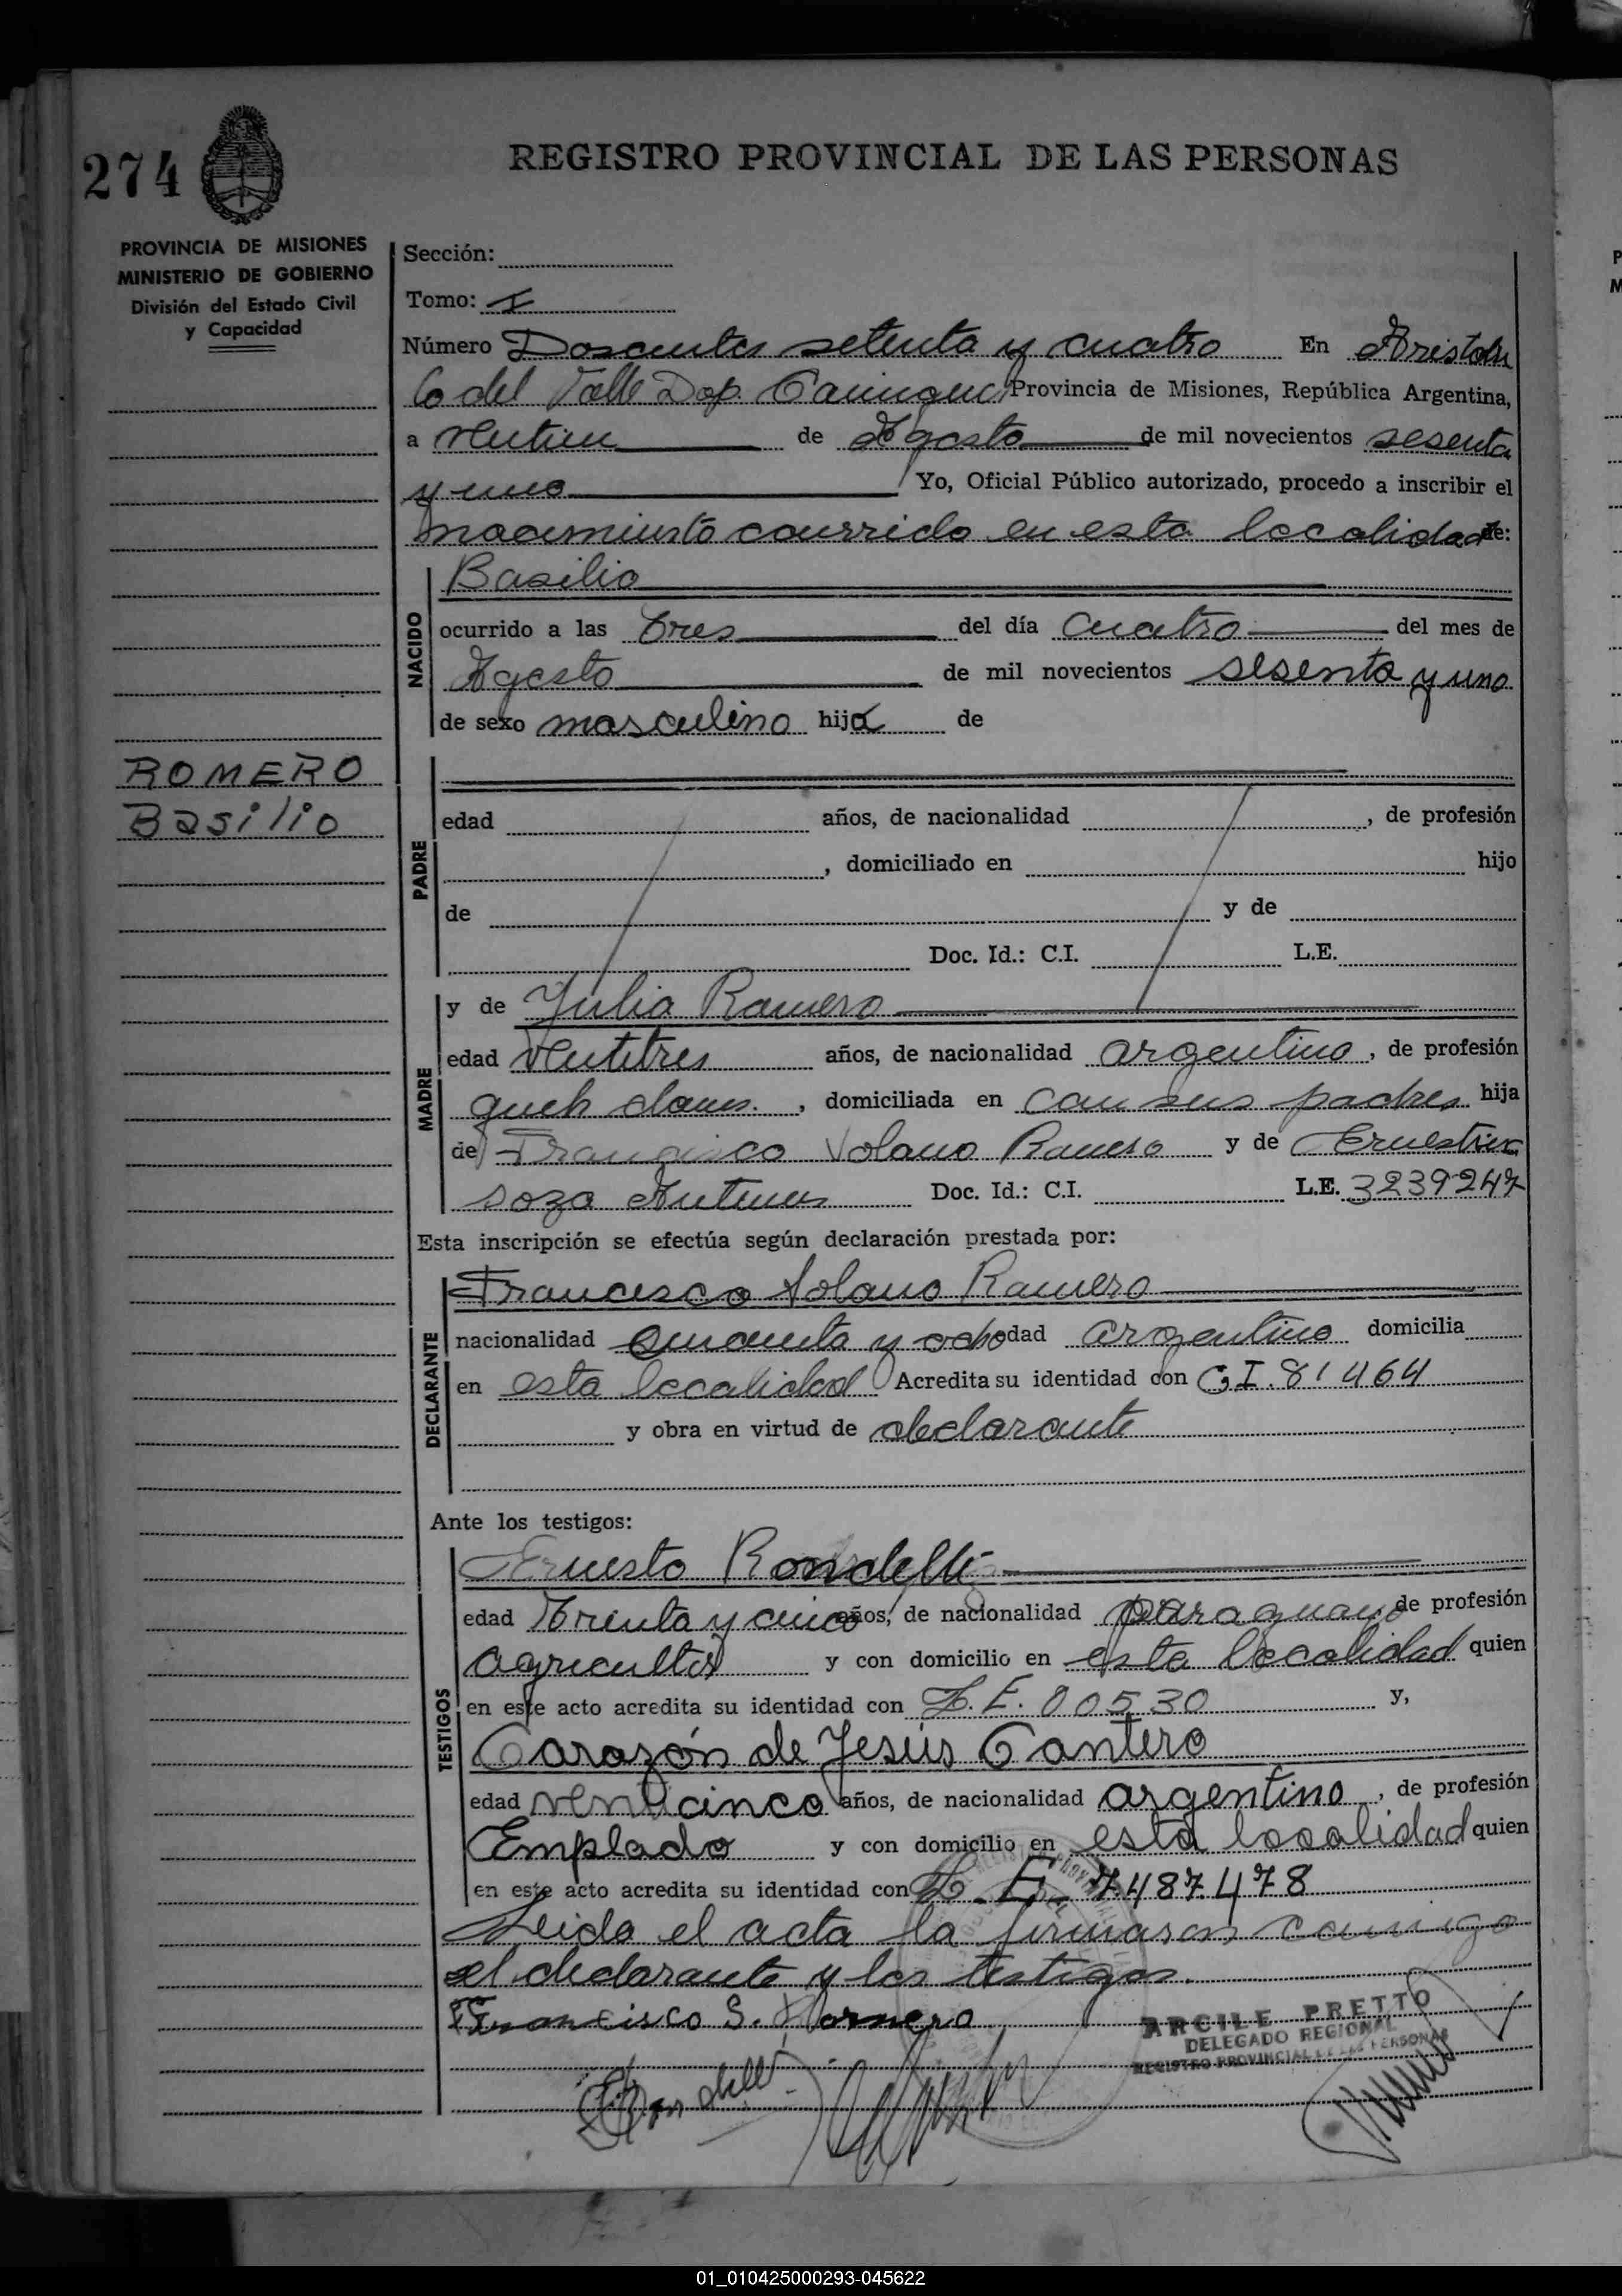 274
REGISTRO PROVINCIAL DE LAS PERSONAS
PROVINCIA DE MISIONES
MINISTERIO DE GOBIERNO
División del Estado Civil
y Capacidad
Sección:
Tomo: I
Número Doscientos setenta y cuatro En Aristobu
lo del Valle Dep. Cainguas Provincia de Misiones, República Argentina,
a de Agosto de mil novecientos sesenta
y uno Yo, Oficial Público autorizado, procedo a inscribir el
nacimiento ocurrido en esta localidad de:
NACIDO
Basilio
ocurrido a las tres del día cuatro del mes de
Agosto de mil novecientos sesenta y uno
de sexo masculino hijo de
ROMERO
Basilio
PADRE
edad años, de nacionalidad , de profesión
, domiciliado en hijo
de y de
Doc. Id.: C.I. L.E.
MADRE
y de Julia Romero
edad años, de nacionalidad argentina, de profesión
queh. doms. , domiciliada en con sus padres hija
de Francisco Solano Romero y de Ernestina
Doc. Id.: C.I. L.E. 3239247
Esta inscripción se efectúa según declaración prestada por:
DECLARANTE
Francisco Solano Romero
nacionalidad y ocho edad argentino domicilia
en esta localidad Acredita su identidad con C.I. 81464
y obra en virtud de declarante
Ante los testigos:
TESTIGOS
Ernesto Rondelli
edad Trenta y cinco años, de nacionalidad paraguayo de profesión
agricultor y con domicilio en esta localidad quien
en este acto acredita su identidad con L.E. 00530 y,
Corazón de Jesús Cantero
edad venticinco años, de nacionalidad argentino, de profesión
Emplado y con domicilio en esta localidad quien
en este acto acredita su identidad con L.E. 7487478
Leida el acta la firmaron conmigo
el declarante y los testigos.
Francisco S. Romero
ARCILE PRETTO
DELEGADO REGIONAL
REGISTRO PROVINCIAL DE LAS PERSONAS
01_010425000293-045622